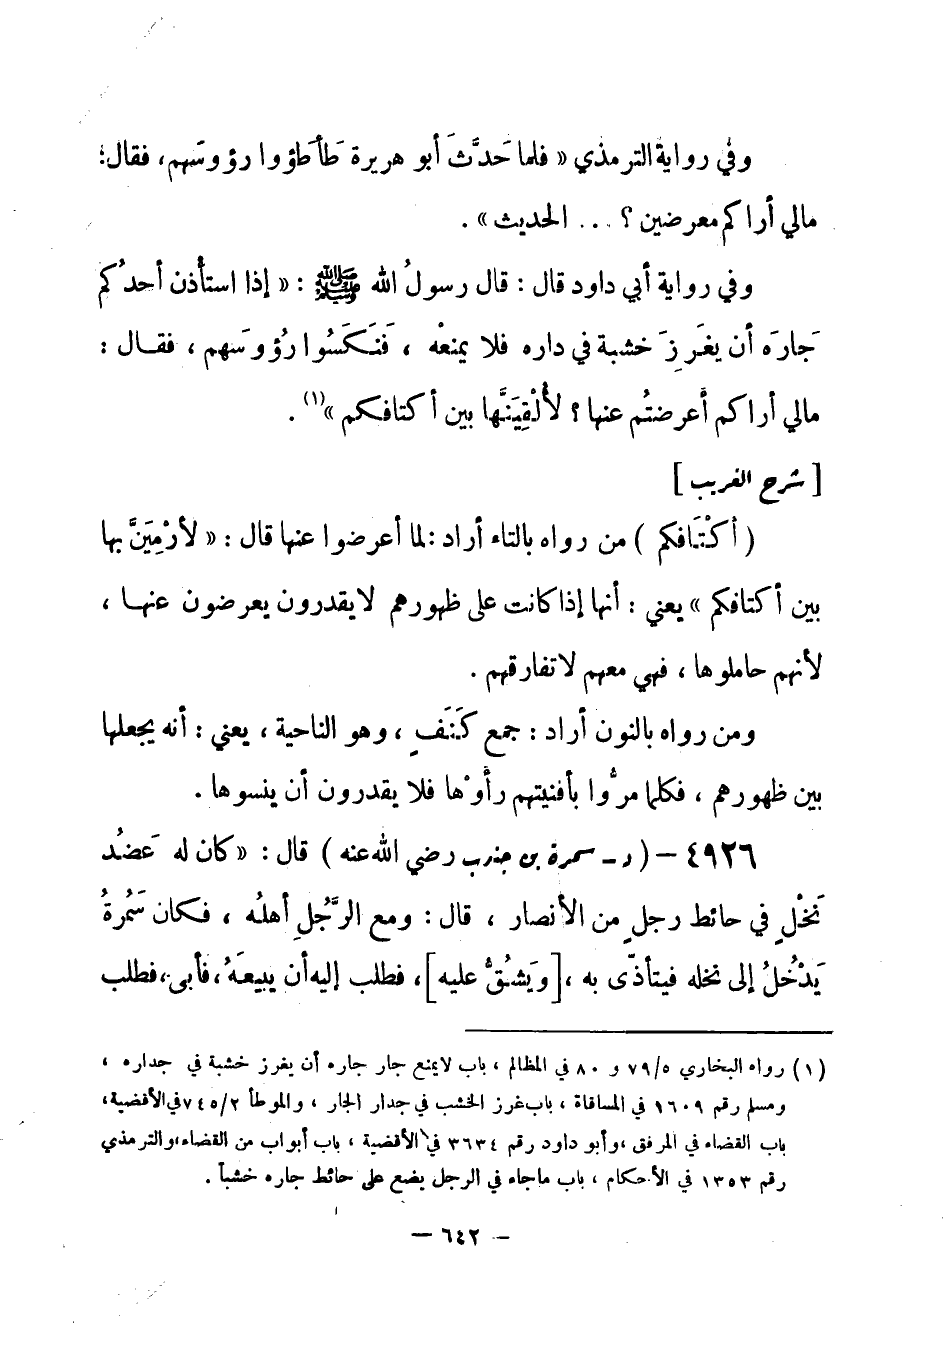 وفي رواية الترمذي « فلما حَدَّثَ أبو هريرة طَأطَؤوا رؤوسَهم، فقال:
مالي أراكم معرضين ؟ ... الحديث » .
وفي رواية أبي داود قال : قال رسولُ الله ﷺ : « إذا استأذن أحدُكم
جارَه أن يغرِزَ خشبة في داره فلا يمنعْه ، فَنَكَسُوا رُؤوسَهم ، فقال :
مالي أراكم أعرضتُم عنها ؟ لأُلْقِيَنَّها بين أكتافكم »(١) .
[ شرح الغريب ]
( أكْتَافكم ) من رواه بالتاء أراد : لما أعرضوا عنها قال : « لأرْمِيَنَّ بها
بين أكتافكم » يعني : أنها إذا كانت على ظهورهم لا يقدرون يعرضون عنها ،
لأنهم حاملوها ، فهي معهم لا تفارقهم .
ومن رواه بالنون أراد : جمع كَنَفٍ ، وهو الناحية ، يعني : أنه يجعلها
بين ظهورهم ، فكلما مرُّوا بأفنيتهم رأوْها فلا يقدرون أن ينسوها .
٤٩٢٦ – ( د – سمرة بن جندب رضي الله عنه ) قال : « كان له عَضُد
نَخْلٍ في حائط رجلٍ من الأنصار ، قال : ومع الرَّجُلِ أهلُه ، فكان سَمُرةُ
يَدْخُلُ إلى نخله فيتأذّى به ، [ ويَشُقُّ عليه ] ، فطلب إليه أن يبيعَهُ ، فأبى ، فطلب
(١) رواه البخاري ٧٩/٥ و ٨٠ في المظالم ، باب لا يمنع جار جاره أن يغرز خشبة في جداره ،
ومسلم رقم ١٦٠٩ في المساقاة ، باب غرز الخشب في جدار الجار ، والموطأ ٧٤٥/٢ في الأقضية ،
باب القضاء في المرفق ، وأبو داود رقم ٣٦٣٤ في الأقضية ، باب أبواب من القضاء ، والترمذي
رقم ١٣٥٣ في الأحكام ، باب ما جاء في الرجل يضع على حائط جاره خشباً .
– ٦٤٢ –